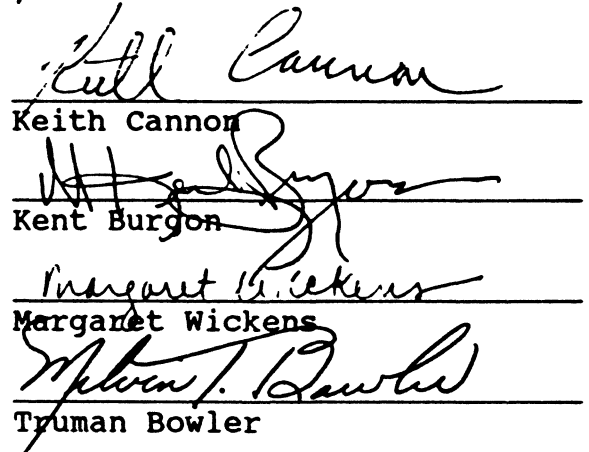 Keith Cannon
Keith Cannon
Kent Burgon
Margaret Wickens
Margaret Wickens
Melvin T. Bowler
Truman Bowler